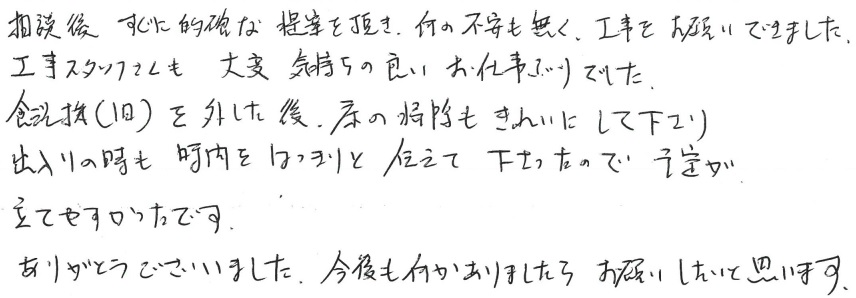 相談後 すぐに的確な提案を頂き、何の不安も無く、工事をお願いできました。
工事スタッフさんも 大変 気持ちの良い お仕事ぶりでした。
食洗機(旧)を外した後、床の掃除もきれいにして下さり
出入りの時も 時内をはっきりと 伝えて 下さったので 予定が
立てやすかったです。
ありがとうございいました。今後も何かありましたら お願いしたいと思います。